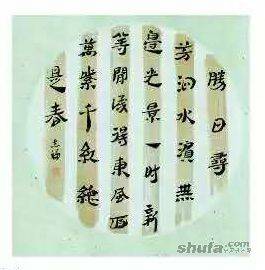 勝日尋
芳泗水濱無
邊光景一時新
等閒識得東風面
萬紫千紅總
是春
shufa.com